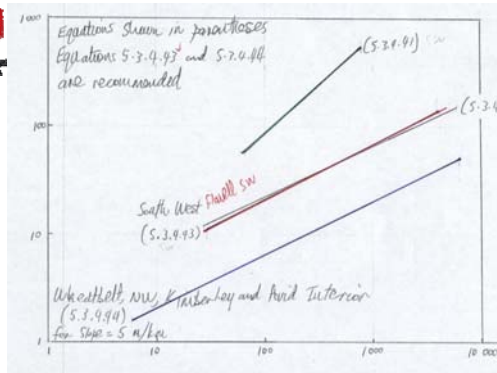 1000
Equations Shown in parentheses
Equations 5.3.4.43 and 5.3.4.44
are recommended
(5.3.4.41) SW
100
(5.3.4
South West Flavell SW
(5.3.4.43)
10
Wheatbelt, NW, Kimberley and Arid Interior
(5.3.4.44)
for Slope = 5 m/km
1
1 10 100 1000 10 000